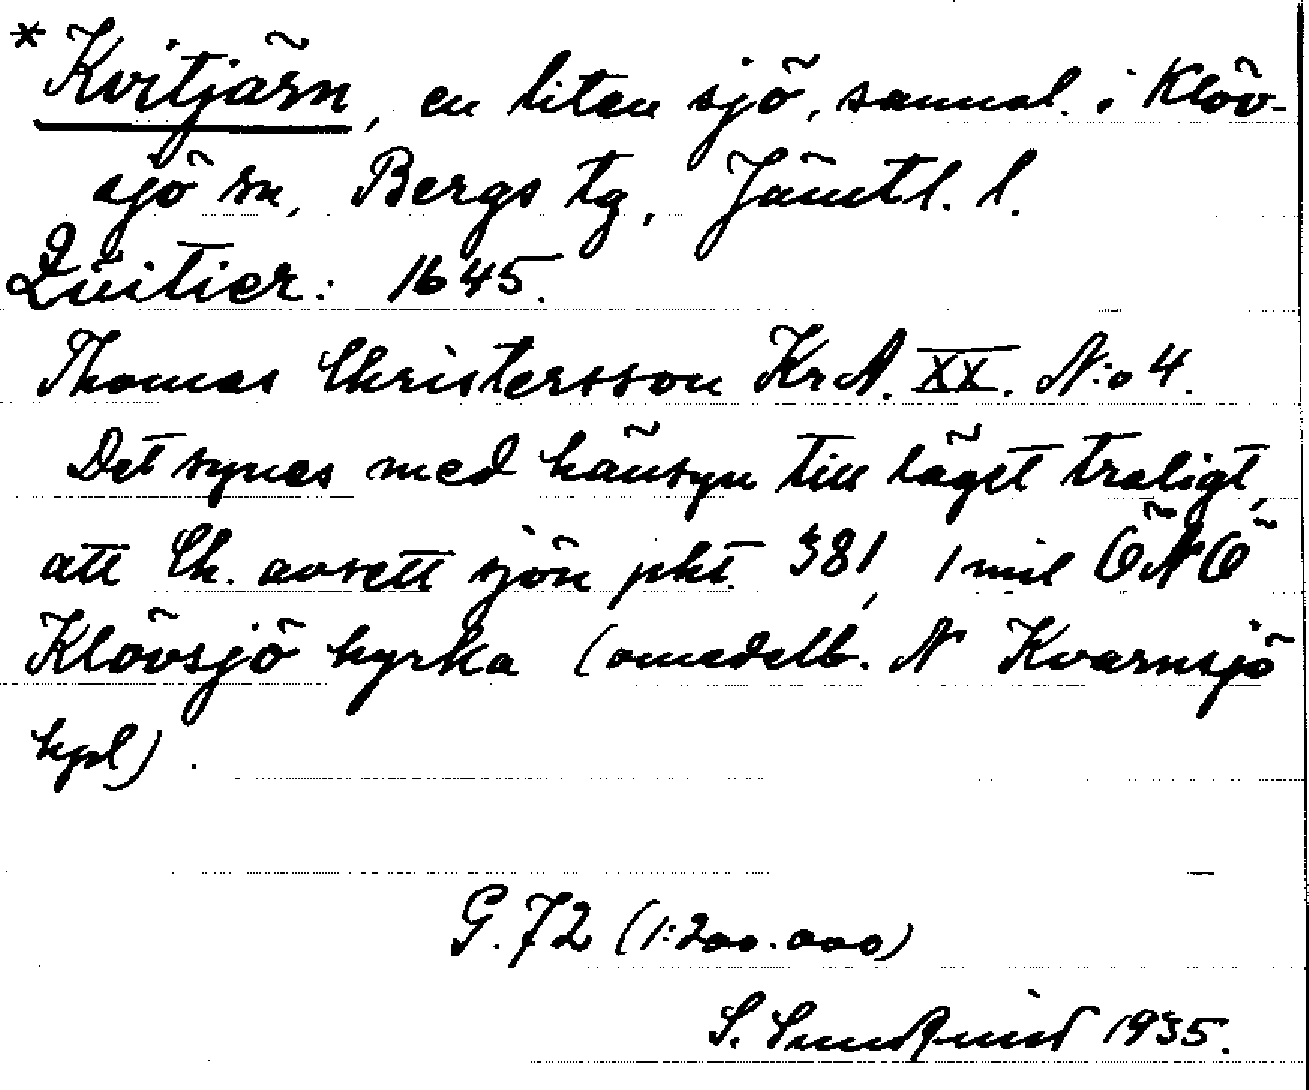 *Kvitjärn, en liten sjö, samval. i Klöv-
sjö sn, Bergs tg, Jämtl. l.
Quitier: 1645.
Thomas Christersson KrA. XX. N:o 4.
Det synes med hänsyn till läget troligt,
att Ch. avsett sjön pkt. 381, 1 mil ÖNÖ
Klövsjö kyrka (omedelb. N Kvarnsjö
hpl).
G. 72 (1:200.000)
S. Sundqvist 1935.